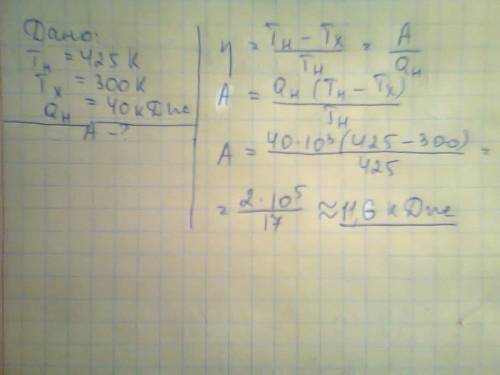 Дано:
Tн = 425 К
Tх = 300 К
Qн = 40 кДж
A - ?
η = (Tн - Tх)/Tн = A/Qн
A = Qн (Tн - Tх)/Tн
A = 40·10³(425-300)/425 =
= 2·10⁵/17 ≈ 11,6 кДж